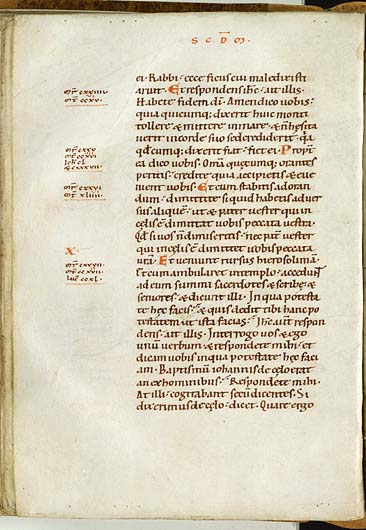 S C D M
ei. Rabbi. ecce ficus cui maledixisti
aruit. Et respondens ihc. ait illis.
Habete fidem di. Amen dico uobis.
quia quicumq; dixerit huic monti
tollere & mittere in mare. & n hesita
uerit in corde suo sed crediderit. qa
qdcumq; dixerit fiat. fiet ei. Propt
ea dico uobis. Oma quecumq; orantes
petitis. credite quia accipietis & eue
nient uobis. Et cum stabitis ad oran
dum. dimittite si quid habetis aduer
sus alique. ut & pater uester qui in
celis e. dimittat uobis peccata uestra.
Qd si uos n dimiseritis. nec pat uester
qui in celis e. dimittet uobis peccata
ura. Et ueniunt rursus hierosolima.
Et cum ambularet in templo. accedunt
ad eum summi sacerdotes & scribe &
seniores. & dicunt illi. In qua potesta
te hec facis. & quis dedit tibi hanc po
testatem ut ista facias. Ihc aut respon
dens. ait illis. Interrogo uos & ego
unu uerbum. & respondete mihi. et
dicam uobis in qua potestate hec faci
am. Baptismu iohannis de celo erat
an ex hominibus. Respondete mihi.
At illi cogitabant secu dicentes. Si
dixerimus de celo. dicet. Quare ergo
mr cxxv
mt ccxvi
mr cxxvi
mt xliiii
X
mr cxxvii
mt ccxvii
luc ccxl